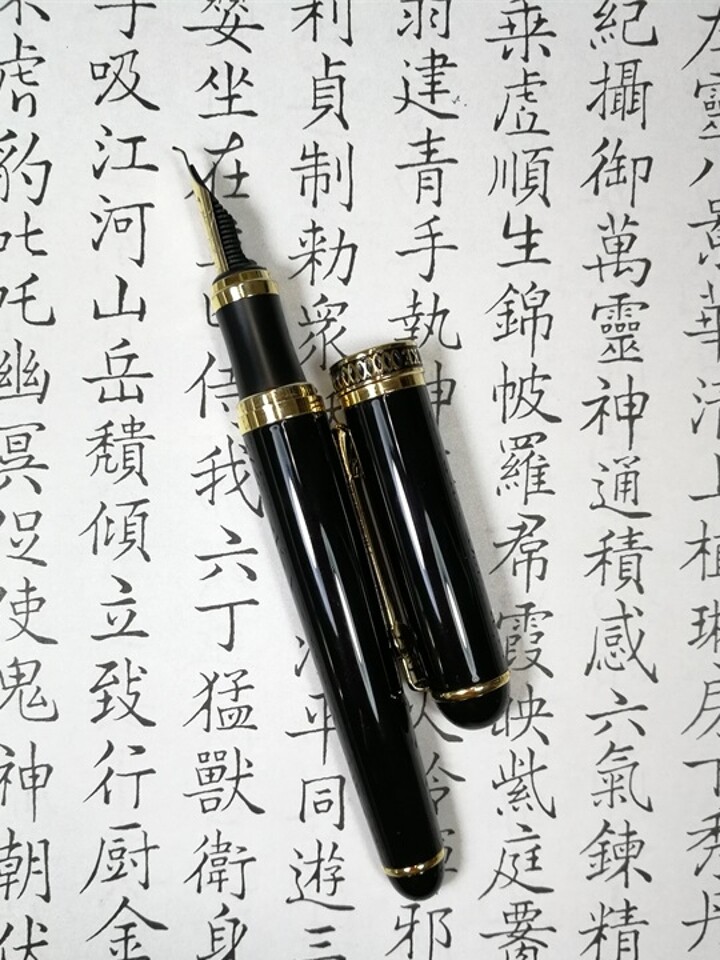 靈八景華清上植琳房下秀丹
紀攝御萬靈神通積感六氣鍊精
乘虛順生錦帔羅帬霞映紫庭
羽建青手執神鈴邪
利貞制勑衆平同遊三
坐在侍我六丁猛獸衛身
手吸江河山岳穨傾立致行厨金
虎豹叱吒幽冥促使鬼神朝伏